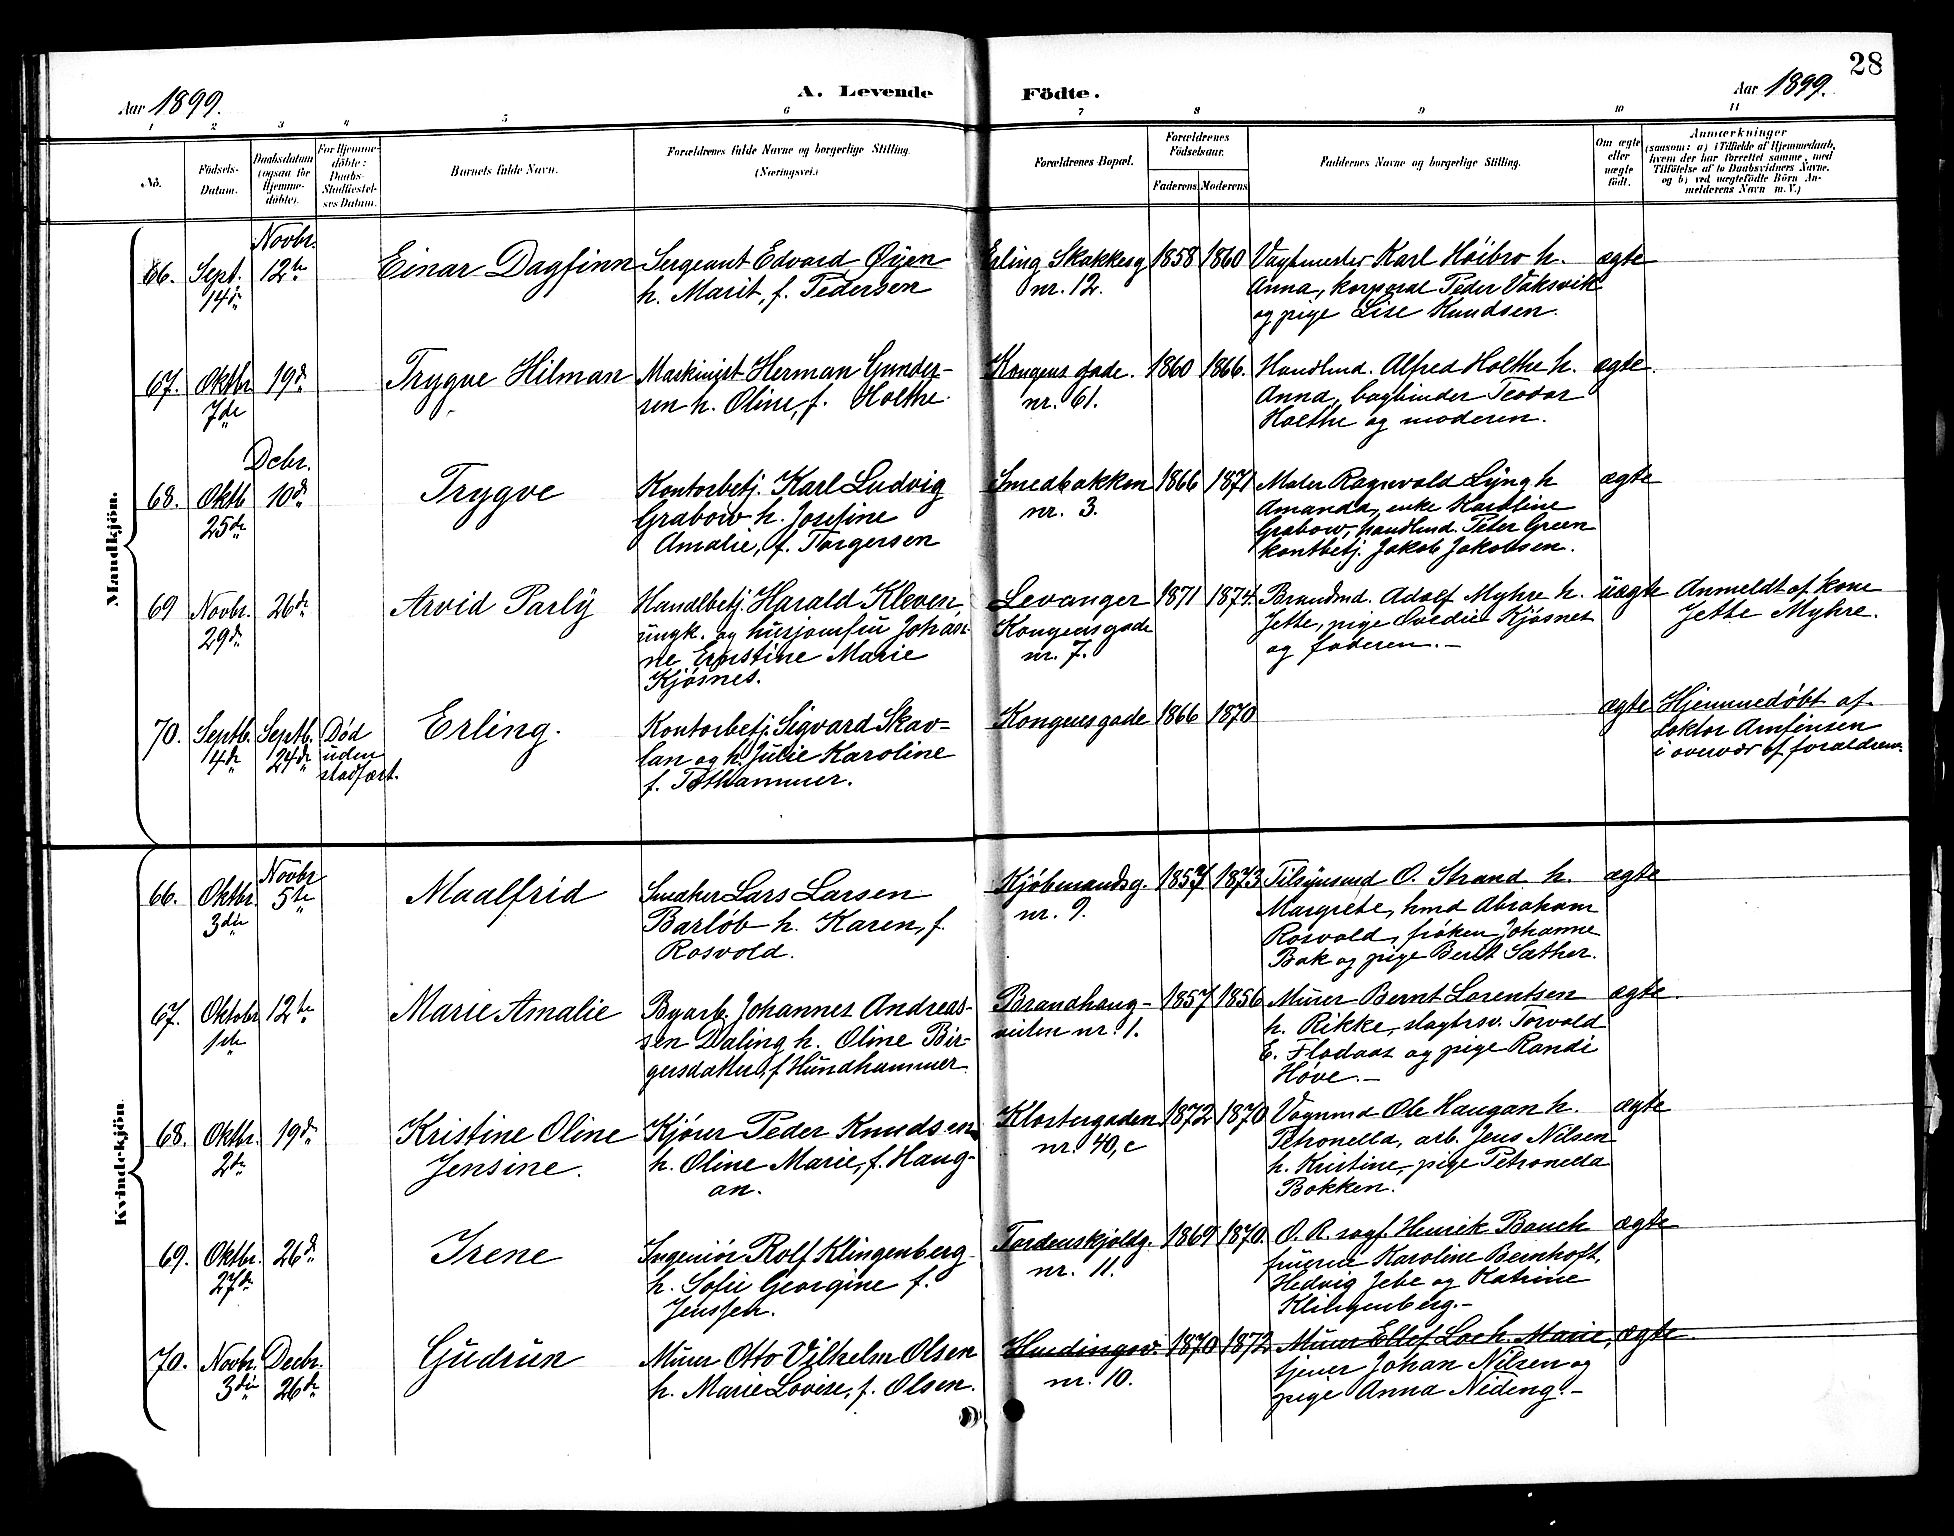 28
Aar 1899.
A. Levende Födte.
Aar 1899.
1 2 3 4 5 6 7 8 9 10 11
No.
Födsels-Datum.
Daabsdatum (ogsaa for Hjemme-döbte).
For Hjemme-döbte: Daabs-Stadfæstel-ses Datum.
Barnets fulde Navn.
Forældrenes fulde Navne og borgerlige Stilling.
(Næringsvei.)
Forældrenes Bopæl.
Forældrenes Födselsaar.
Faderens Moderens
Faddernes Navne og borgerlige Stilling.
Om ægte eller uægte født.
Anmærkninger
(saasom: a) i Tilfælde af Hjemmedaab,
hvem der har forrettet samme, med
Tilföielse af to Daabsvidners Navne,
og b) ved uægtefödte Börn An-
melderens Navn m. V.)
Mandkjön.
66. Sept. 14de Novbr. 12te Einar Dagfinn Sergeant Edvard Øyen Erling Skakkesg 1858 1860 Vagtmester Karl Høibro h. ægte
h. Marit, f. Pedersen nr. 12. Anna, korporal Peder Vaksvik
og pige Lise Knudsen.
67. Oktbr 7de 19de Trygve Hilman Maskinist Herman Gunder- Kongens gade. 1860 1866. Handlmd. Alfred Holthe h. ægte.
sen h. Oline, f. Holthe. nr. 61. Anna, bogbinder Teodor
Holthe og moderen.
68. Oktb 25de Decbr. 10de Trygve Kontorbetj. Karl Ludvig Smedbakken 1866 1871 Maler Ragnvald Lyng h ægte
Grabow h. Josefine nr. 3. Amanda, enke Karoline
Amalie, f. Torgersen Grabow, handlmd. Peter Green
kontbetj. Jakob Jakobsen.
69 Novbr. 29de 26de Arvid Parly Handlbetj. Harald Kleven, Levanger 1871 1874. Brandmd. Adolf Myhre h. uægte Anmeldt af kone
ungk. og husjomfru Johan- Kongensgade Jette, pige Ovedie Kjøsnes Jette Myhre.
ne Ernstine Marie nr. 7. og faderen.-
Kjøsnes.
70. Septb. 14de Septb. 24de Død uden stadfæst. Erling. Kontorbetj. Sigvard Skav- Kongensgade 1866 1870 ægte Hjemmedøbt af
lan og h. Julie Karoline doktor Arnfinsen
f. i overvær af forældrene.
Kvindekjön.
66. Oktbr. 3die Novbr 5te Maalfrid Snedker Lars Larsen Kjøbmandsg. 1857 1873 Tilsynsmd O. Strand h. ægte
Barløb h. Karen, f. nr. 9. Margrete, hmd Abraham
Rosvold. Rosvold, frøken Johanne
Bak og pige Berit Sæther.
67. Oktober 1ste 12te Marie Amalie Byarb. Johannes Andreas- Brandhaug- 1857 1856 Murer Bernt Lorentsen ægte.
sen Daling h. Oline Bir- veiten nr. 1. h. Rikke, slagtrsv. Torvald
gersdatter, f Hundhammer. E. Flodaas og pige Randi
Høve.-
68. Oktbr. 2den 19de Kristine Oline Kjører Peder Knudsen Klostergaden 1872 1870 Vognmd Ole Haugan h. ægte
Jensine. h. Oline Marie, f. Haug- nr. 40, c Petronella, arb. Jens Nilsen
an. h. Kristine, pige Petronella
Bakken.
69. Oktbr. 27de 26de Irene Ingeniør Rolf Klingenberg Tordenskjoldg. 1869 1870. O. R. sagf. Henrik Bauck ægte
h. Sofie Georgine f. nr. 11. fruerne Karoline Beenhoft,
Jenssen. Hedvig Jebe og Katrine
Klingenberg.-
70. Novbr. 3die Decbr. 26de Gudrun Murer Otto Vilhelm Olsen 1870 1872 Murer Ellef Loe h. Marie, ægte.
h. Marie Lovise, f. Olsen. nr. 10. tjener Johan Nilsen og
pige Anna Nideng.-